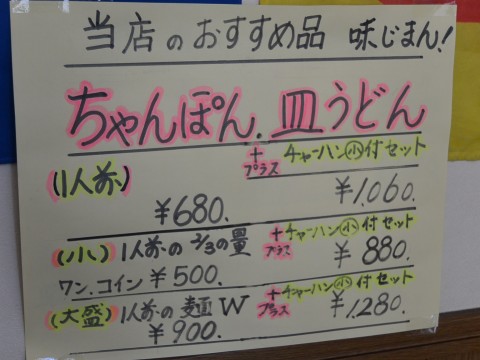 当店のおすすめ品 味じまん!
ちゃんぽん.皿うどん
+プラス チャーハン小付セット
(1人前) ¥680. ¥1,060.
(小) 1人前の2/3の量 +プラス チャーハン小付セット
ワン.コイン ¥500. ¥880.
(大盛) 1人前の麺W +プラス チャーハン小付セット
¥900. ¥1,280.